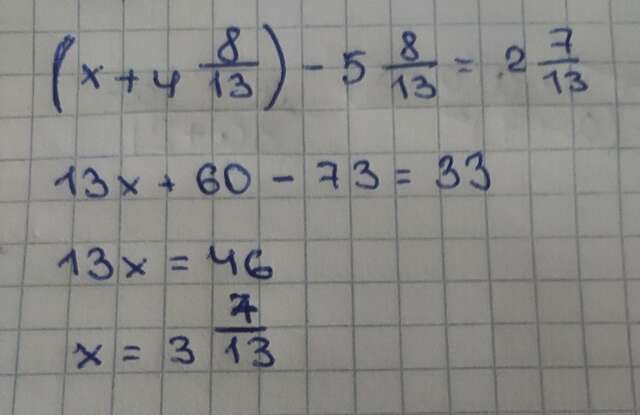 (x + 4 8/13) - 5 8/13 = 2 7/13
13x + 60 - 73 = 33
13x = 46
x = 3 7/13